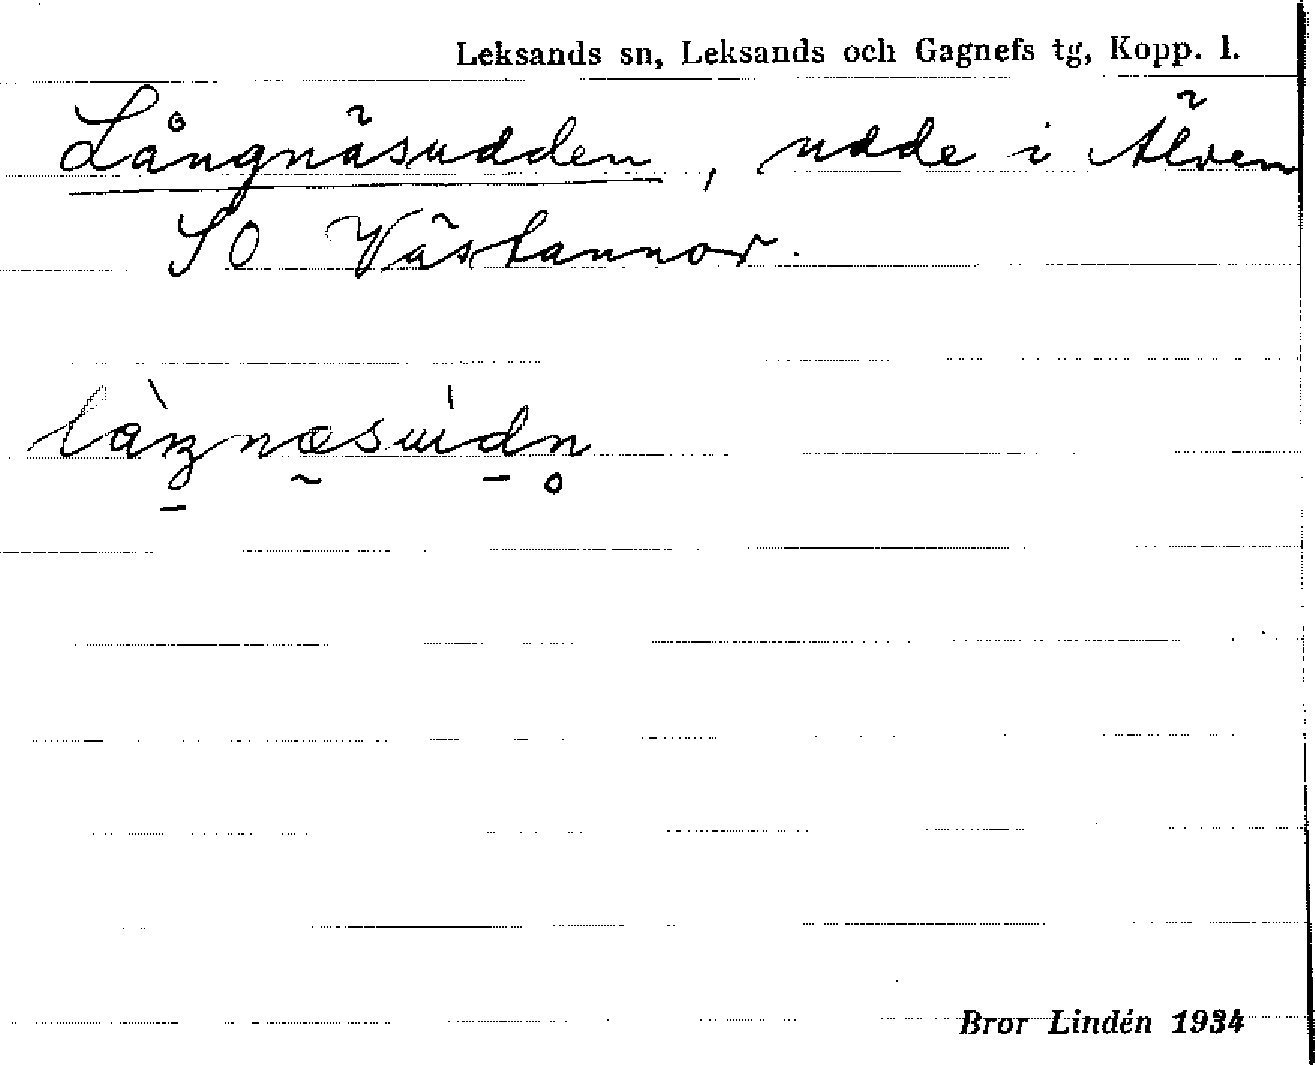 Leksands sn, Leksands och Gagnefs tg, Kopp. l.
Långnäsudden, udde i Älven
SO Västannor.
Bror Lindén 1934